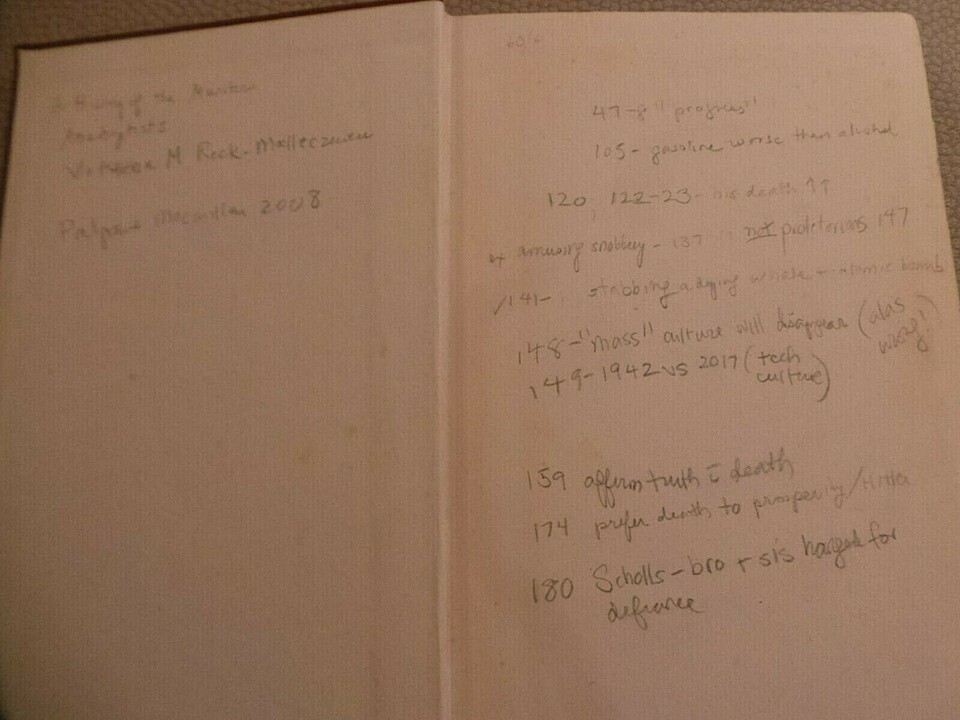 A History of the Münster
Anabaptists
M Reck-Malleczewen
Palgrave Macmillan 2008
47-8 "progress"
105- gasoline worse than alcohol
120, 122-23- his death ↑↑
amusing snobbery - 137 not proletarians 147
✓141- stabbing a dying whale - atomic bomb
148-"mass" culture will disappear (alas
wrong!)
149-1942 vs 2017 (tech
culture)
159 affirm truth c̄ death
174 prefer death to prosperity/Hitler
180 Scholls-bro + sis hanged for
defiance